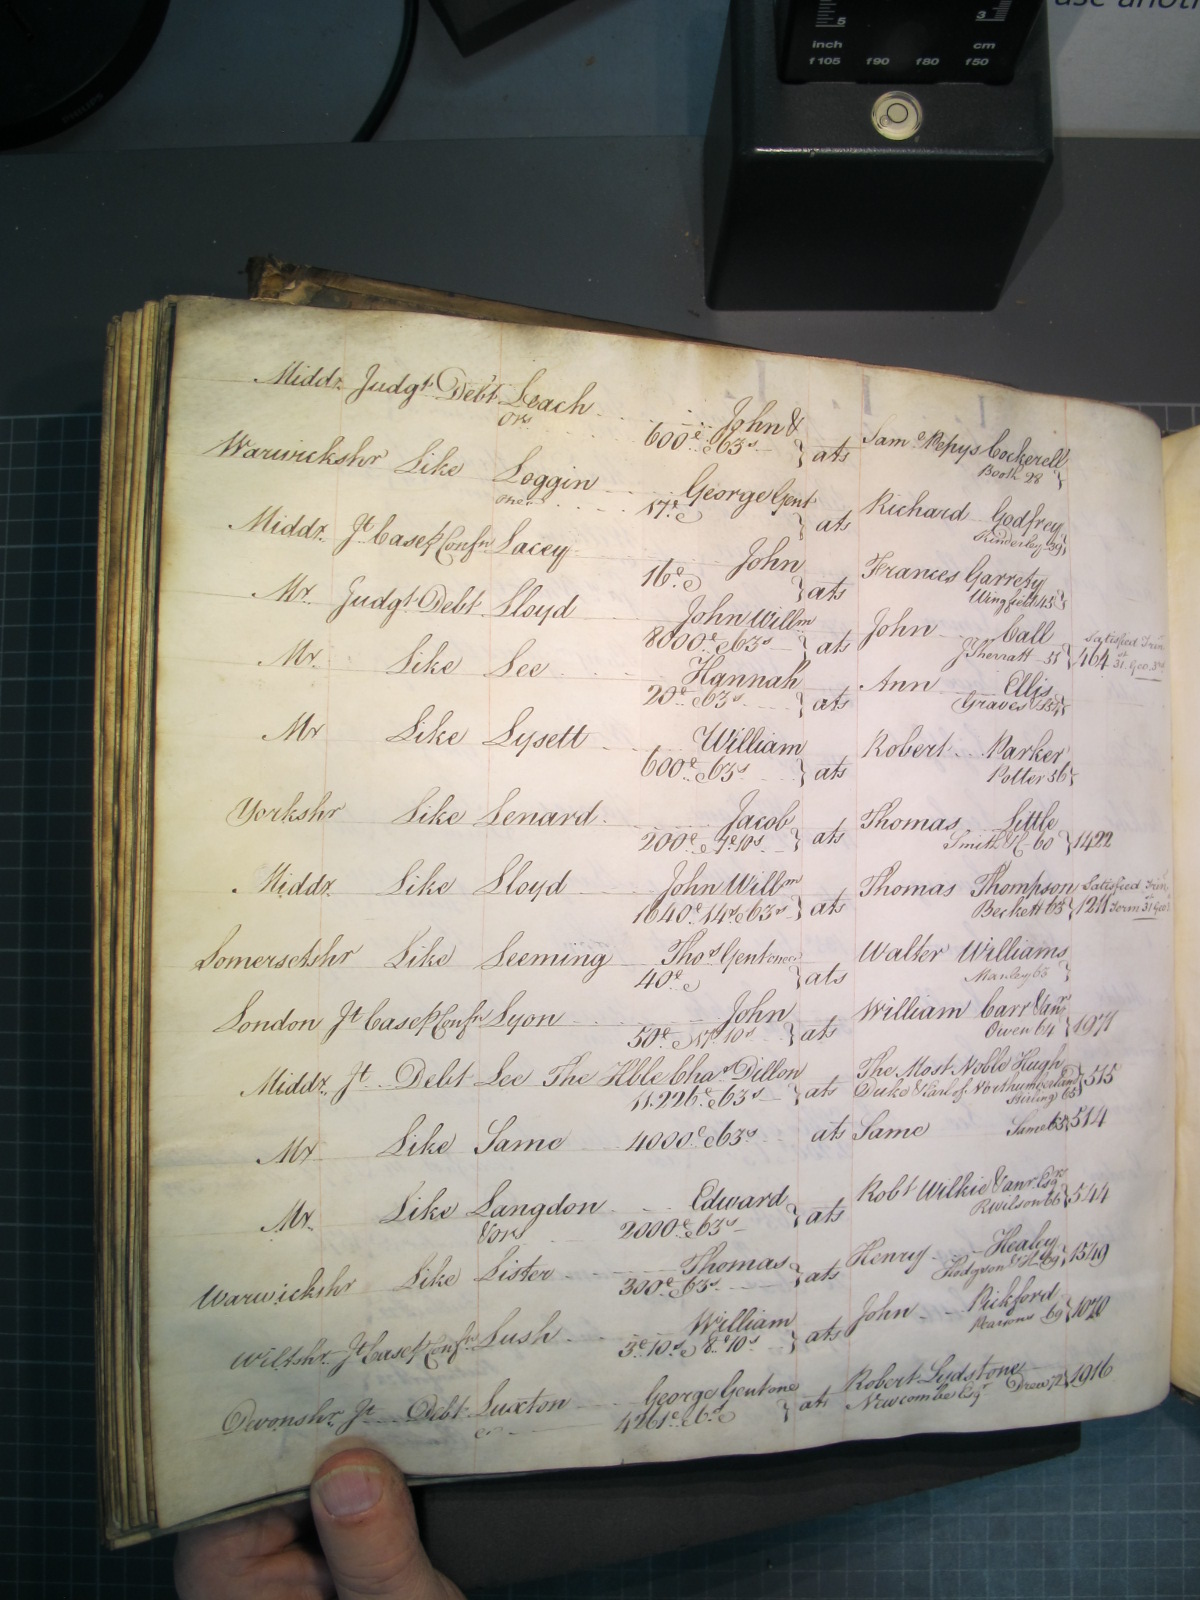 use anot
5 3
inch cm
f105 f90 f80 f50
PHILIPS
Middx. Judgt. Debt. Leach John & ats Saml. Pepys Cockerell
Ors 600£ & 63s Booth 28
Warwickshr Like Loggin George Gent ats Richard Godfrey
one &c 17£ Kinderley 39
Middx. Jt Case p Confn Lacey John ats Frances Garrety
16£ Wingfield 45
Mx. Judgt. Debt. Lloyd John Willm ats John Call
8000£ & 63s J Sherratt 51 464 Satisfied Trin 31st Geo. 3rd
Mx. Like Lee Hannah ats Ann Ellis
20£ & 63s Graves 54
Mx Like Lysett William ats Robert Parker
600£ & 63s Potter 56
Yorkshr Like Lenard Jacob ats Thomas Little
200£ & 7£ 10s Smith 60 1422
Middx. Like Lloyd John Willm ats Thomas Thompson Satisfied Trin.
1640£ 14s & 63s Beckett 63 1211 Term 31 Geo 3
Somersetshr Like Leeming Thos Gent one &c ats Walter Williams
40£ Manley 63
London Jt Case p Confn Lyon John ats William Carr & anr
50£ & 17£ 10s Owen 64 1977
Middx. Jt. Debt Lee The Hble Chas Dillon ats The Most Noble Hugh
11.226£ & 63s Duke & Earl of Northumberland 515
Stirling 63
Mx Like Same 4000£ & 63s ats Same Same 63 514
Mx. Like Langdon Edward ats Robt Wilkie & anr Esqr
& ors 2000£ & 63s R Wilson 66 544
Warwickshr Like Lister Thomas ats Henry Healey
300£ & 63s Hodgson 69 1549
Wiltshr Jt Case p Confn Lush William ats John Pickford
3£ 10s & 8£ 10s Mecums 69 1070
Devonshr Jt Debt Luxton George Gent one ats Robert Lydstone
&c 4261£ & 6s Newcombe Esqr Drew 72 1916